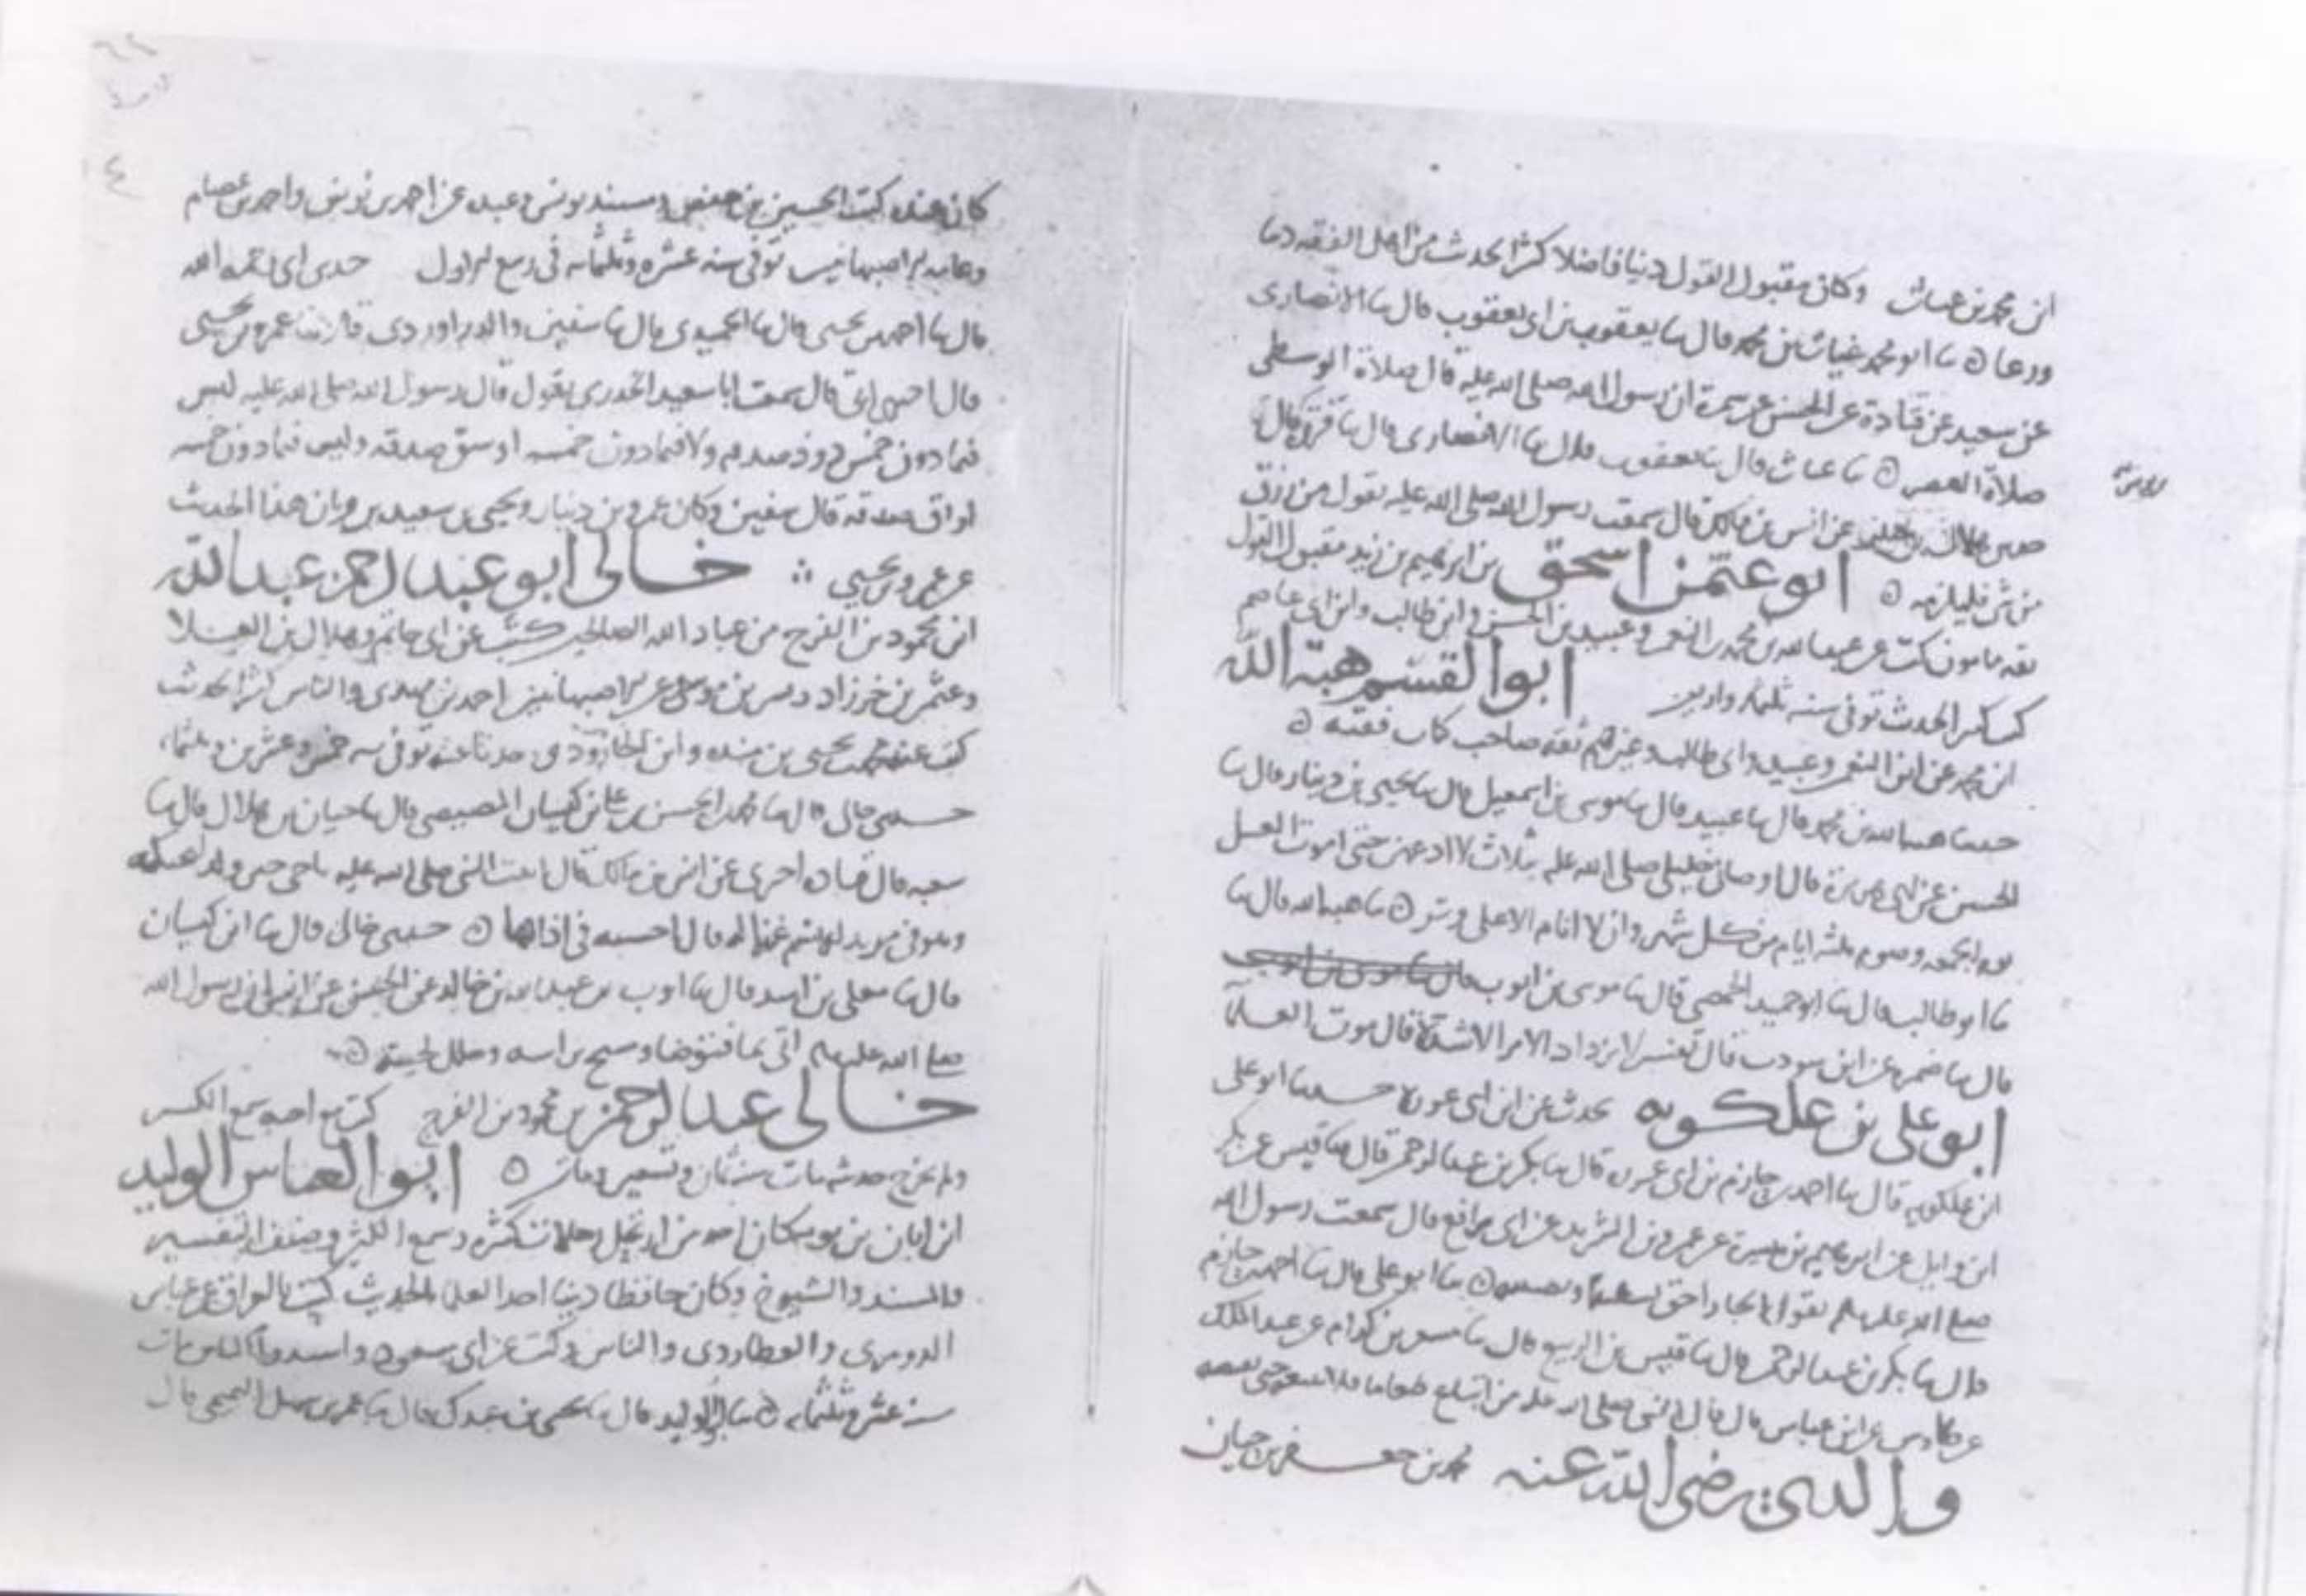 ابن محمد بن غياث وكان مقبول القول دينا فاضلا كثير الحديث من اهل الفقه
ورعا ٥ نا ابو محمد غياث بن محمد قال نا يعقوب بن ابي يعقوب قال نا الانصاري
عن سعيد عن قتادة عن الحسن عن سمرة ان رسول الله صلى الله عليه قال صلاة الوسطى
صلاة العصر ٥ نا غياث قال نا يعقوب قال نا الانصاري قال نا
هلال عن انس بن مالك قال سمعت رسول الله صلى الله عليه يقول من رزق
من شي فليلزمه ٥ ابو عثمن اسحق بن ابرهيم بن زيد مقبول القول
ثقة مامون كتب عن عبد الله بن محمد بن النعمن وعبيد بن الحسن وابن طالب وابن ابي عاصم
الحديث توفي سنة ثلثمائة ابو القسم هبة الله
ابن محمد عن ابن النعمن وعبيد وابي طالب وغيرهم ثقة صاحب كتاب فقيه ٥
حدثنا هبة الله بن محمد قال نا عبيد قال نا موسى بن اسمعيل قال نا يحيى بن دينار قال نا
الحسن عن ابي هريرة قال اوصاني خليلي صلى الله عليه بثلاث لا ادعهن حتى اموت الغسل
يوم الجمعة وصوم ثلثة ايام من كل شهر وان لا انام الا على وتر ٥ نا هبة الله قال نا
نا ابو طالب قال نا ابو حميد الحمصي قال نا موسى بن ايوب
قال نا ضمرة عن ابن شوذب قال لا يزداد الامر الا شدة قال موت العلما
ابو علي بن علكويه يحدث عن ابن ابي غرزة حدثنا ابو علي
ابن علكويه قال نا احمد بن حازم بن ابي غرزة قال نا بكر بن عبد الرحمن قال نا قيس عن بكر
ابن وايل عن ابرهيم بن ميسرة عن عمرو بن الشريد عن ابي رافع قال سمعت رسول الله
صلى الله عليه وسلم يقول الجار احق بسقبه ٥ نا ابو علي قال نا احمد بن حازم
قال نا بكر بن عبد الرحمن قال نا قيس بن الربيع قال نا مسعر بن كدام عن عبد الملك
عن طاوس عن ابن عباس قال قال النبي صلى الله عليه من ابتاع طعاما فلا يبيعه حتى يقبضه
والدي رضي الله عنه محمد بن جعفر بن حيان
كان عنده كتب الحسين بن حفص ومسند يونس وعبد عن احمد بن يونس واحمد بن عصام
وعامة الاصبهانيين توفي سنة عشرة وثلثمائة في ربيع الاول حدثني ابي رحمه الله
قال نا احمد بن يحيى قال نا الحميدي قال نا سفين والدراوردي قالا نا عمرو بن يحيى
قال اخبرني ابي قال سمعت ابا سعيد الخدري يقول قال رسول الله صلى الله عليه ليس
فيما دون خمس ذود صدقة ولا فيما دون خمسة اوسق صدقة وليس فيما دون خمسة
اواق صدقة قال سفين وكان عمرو بن دينار ويحيى بن سعيد يرويان هذا الحديث
عن عمرو بن يحيى خالي ابو عبد الرحمن عبد الله
ابن محمود بن الفرج من عباد الله الصالحين كتب عن ابي حاتم وهلال بن العلا
وعثمن بن خرزاد وعن الاصبهانيين احمد بن مهدي والناس كثير الحديث
كتب عنه محمد بن يحيى بن منده وابن الجارود توفي سنة خمس وعشرين وثلثمائة
حدثني خالي قال نا محمد بن الحسن بن علي بن كيسان المصيصي قال نا حبان بن هلال قال نا
شعبة قال قتادة اخبرني عن انس بن مالك قال اتيت النبي صلى الله عليه باخي حين ولد
وهو في مربد له يسم غنما له قال احسبه في اذانها ٥ حدثني خالي قال نا ابن كيسان
قال نا معلى بن اسد قال نا ايوب بن عبد الله بن خالد عن الحسن عن انس ان رسول الله
صلى الله عليه اتي بما فتوضا ومسح براسه وخلل لحيته ٥
خالي عبد الرحمن بن محمود بن الفرج كتب مع اخيه سمع الكثير
ولم يخرج حديثه مات سنة ثمان وتسعين ومائتين ٥ ابو العباس الوليد
ابن ابان بن بونة كان احد من ارتحل رحلات كثيرة وسمع الكثير وصنف التفسير
والمسند والشيوخ وكان حافظا دينا احد العلماء بالحديث كتب بالعراق عن عباس
الدوري والعطاردي والناس وكتب عن ابي مسعود واسيد والناس مات
سنة عشر وثلثمائة ٥ نا الوليد قال نا يحيى بن عبدك قال نا عمر بن سهل التميمي قال